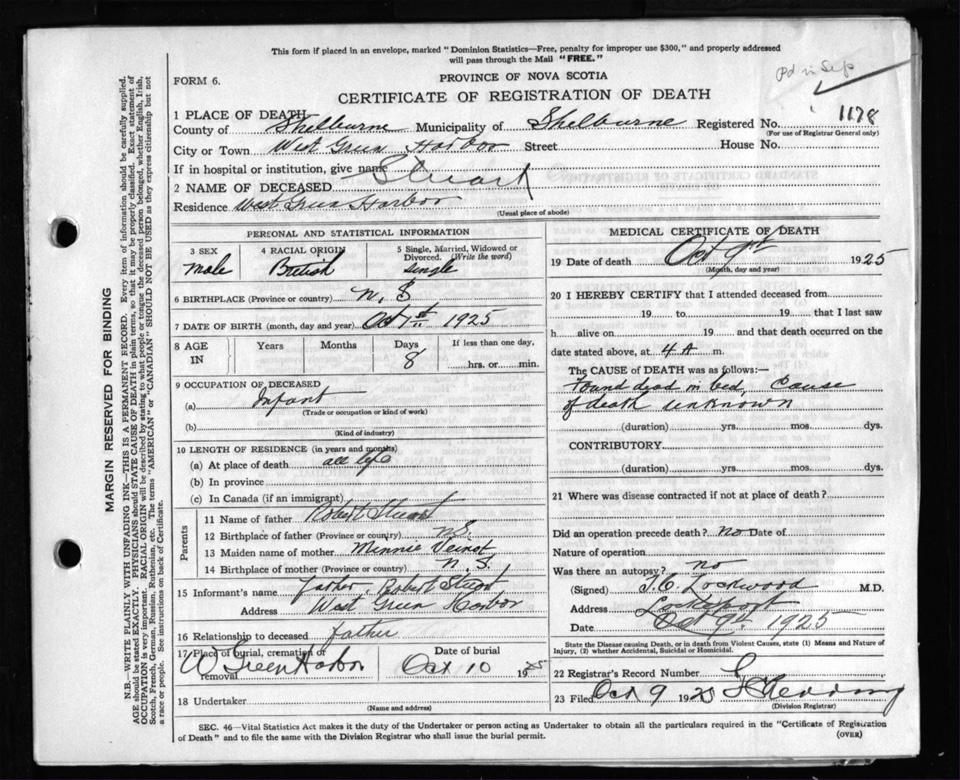 This form if placed in an envelope, marked "Dominion Statistics—Free, penalty for improper use $300," and properly addressed
will pass through the Mail "FREE."
Pd in Sep
FORM 6.
PROVINCE OF NOVA SCOTIA
CERTIFICATE OF REGISTRATION OF DEATH
1 PLACE OF DEATH
County of Shelburne Municipality of Shelburne Registered No. 1178
(For use of Registrar General only)
City or Town West Green Harbor Street House No.
If in hospital or institution, give name
2 NAME OF DECEASED Stuart
Residence West Green Harbor
(Usual place of abode)
PERSONAL AND STATISTICAL INFORMATION
3 SEX 4 RACIAL ORIGIN 5 Single, Married, Widowed or
Divorced. (Write the word)
male British Single
6 BIRTHPLACE (Province or country) N.S
7 DATE OF BIRTH (month, day and year) Oct 1st 1925
8 AGE IN Years Months Days If less than one day,
8 hrs. or min.
9 OCCUPATION OF DECEASED
(a) Infant
(Trade or occupation or kind of work)
(b)
(Kind of industry)
10 LENGTH OF RESIDENCE (in years and months)
(a) At place of death all life
(b) In province
(c) In Canada (if an immigrant)
Parents
11 Name of father Robert Stuart
12 Birthplace of father (Province or country) N.S.
13 Maiden name of mother Minnie
14 Birthplace of mother (Province or country) N.S.
15 Informant's name father, Robert Stuart
Address West Green Harbor
16 Relationship to deceased father
17 Place of burial, cremation or
removal W Green Harbor
Date of burial
Oct 10 1925
18 Undertaker
(Name and address)
MEDICAL CERTIFICATE OF DEATH
19 Date of death Oct 9th 1925
(Month, day and year)
20 I HEREBY CERTIFY that I attended deceased from
19 to 19 that I last saw
h alive on 19 and that death occurred on the
date stated above, at 4 A m.
The CAUSE of DEATH was as follows:—
Found dead in bed, Cause
of death unknown
(duration) yrs. mos. dys.
CONTRIBUTORY
(duration) yrs. mos. dys.
21 Where was disease contracted if not at place of death?
Did an operation precede death? no Date of
Nature of operation
Was there an autopsy? no
(Signed) Lockwood M.D.
Address Lockeport
Date Oct 9th 1925
State the Disease causing Death, or in death from Violent Causes, state (1) Means and Nature of
Injury, (2) whether Accidental, Suicidal or Homicidal.
22 Registrar's Record Number
23 Filed Oct 9 1925
(Division Registrar)
SEC. 46—Vital Statistics Act makes it the duty of the Undertaker or person acting as Undertaker to obtain all the particulars required in the "Certificate of Registration
of Death" and to file the same with the Division Registrar who shall issue the burial permit.
(OVER)
MARGIN RESERVED FOR BINDING
N.B.—WRITE PLAINLY WITH UNFADING INK—THIS IS A PERMANENT RECORD. Every item of information should be carefully supplied.
AGE should be stated EXACTLY. PHYSICIANS should STATE CAUSE OF DEATH in plain terms, so that it may be properly classified. Exact statement of
OCCUPATION is very important. RACIAL ORIGIN will be described by stating to what people or tongue the deceased person belonged, whether English, Irish,
Scotch, French, German, Russian, Ruthenian, etc. The terms "AMERICAN" or "CANADIAN" SHOULD NOT BE USED as they express citizenship but not
a race or people. See instructions on back of Certificate.